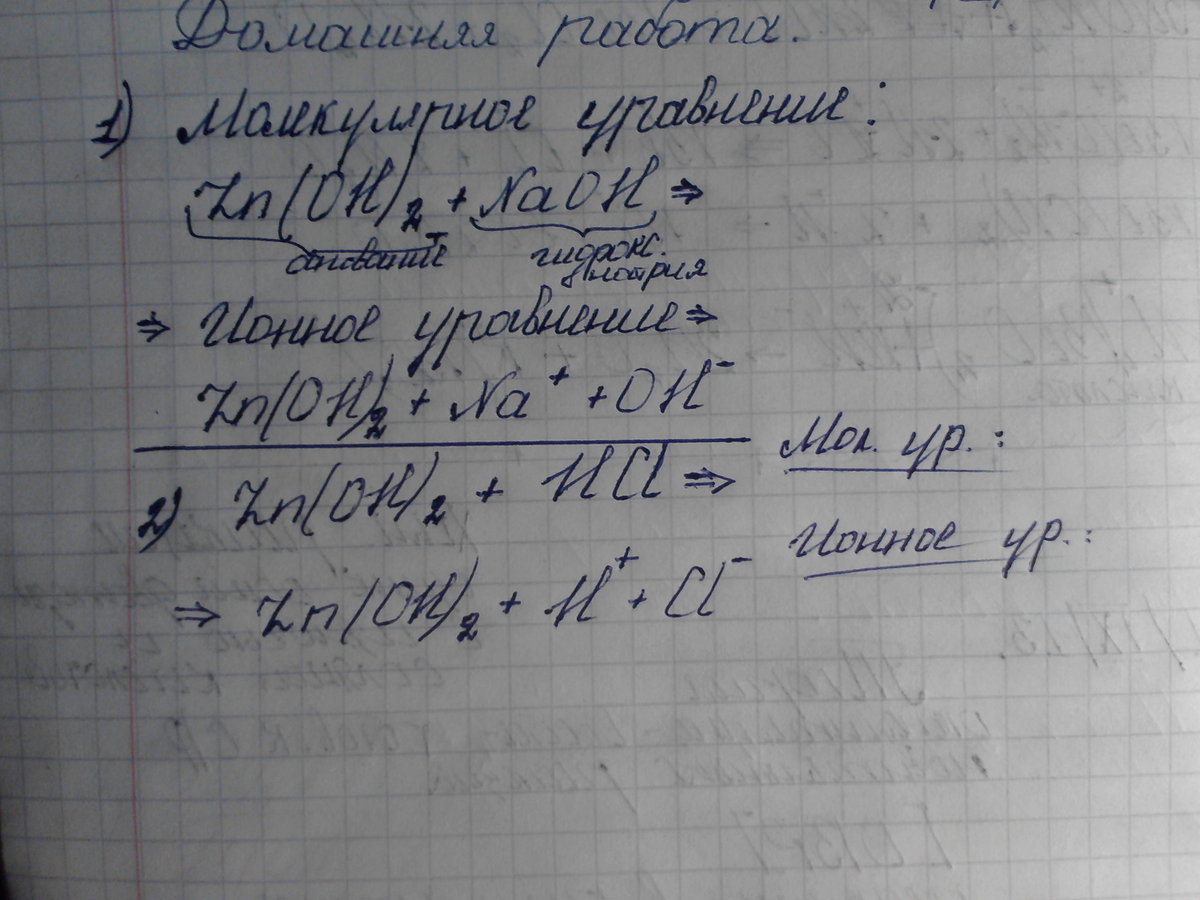 Домашняя работа.
1) Молекулярное уравнение:
Zn(OH)₂ + NaOH ⇒
гидрокс.
натрия
⇒ Ионное уравнение ⇒
Zn(OH)₂ + Na⁺ + OH⁻
Мол. ур.:
2) Zn(OH)₂ + HCl ⇒
Ионное ур.:
⇒ Zn(OH)₂ + H⁺ + Cl⁻